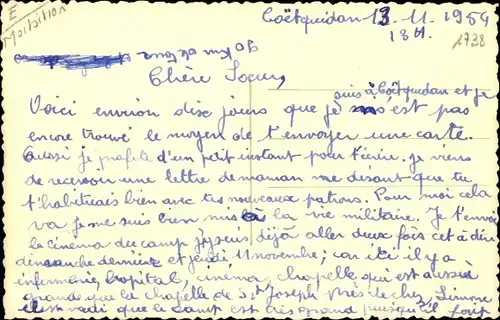 Coëtquidan 13.11.1954
18H.
1738
Chère Soeur,
Voici environ dix jours que je suis à Coëtquidan et je n'est pas
encore trouvé le moyen de t'envoyer une carte.
Aussi je profite d'un petit instant pour t'écrire. Je viens
de recevoir une lettre de maman me disant que tu
t'habituais bien avec tes nouveaux patrons. Pour moi cela
va je me suis bien mis à la vie militaire. Je
le cinéma du camp j'y suis déjà aller deux fois cet à dire
dimanche dernier et jeudi 11 novembre; car ici il y a
infirmerie, hopital, cinéma, chapelle qui est aussi
grande que la chapelle de St Joseph près de chez Simone
que le camp est très grand puisqu'il faut